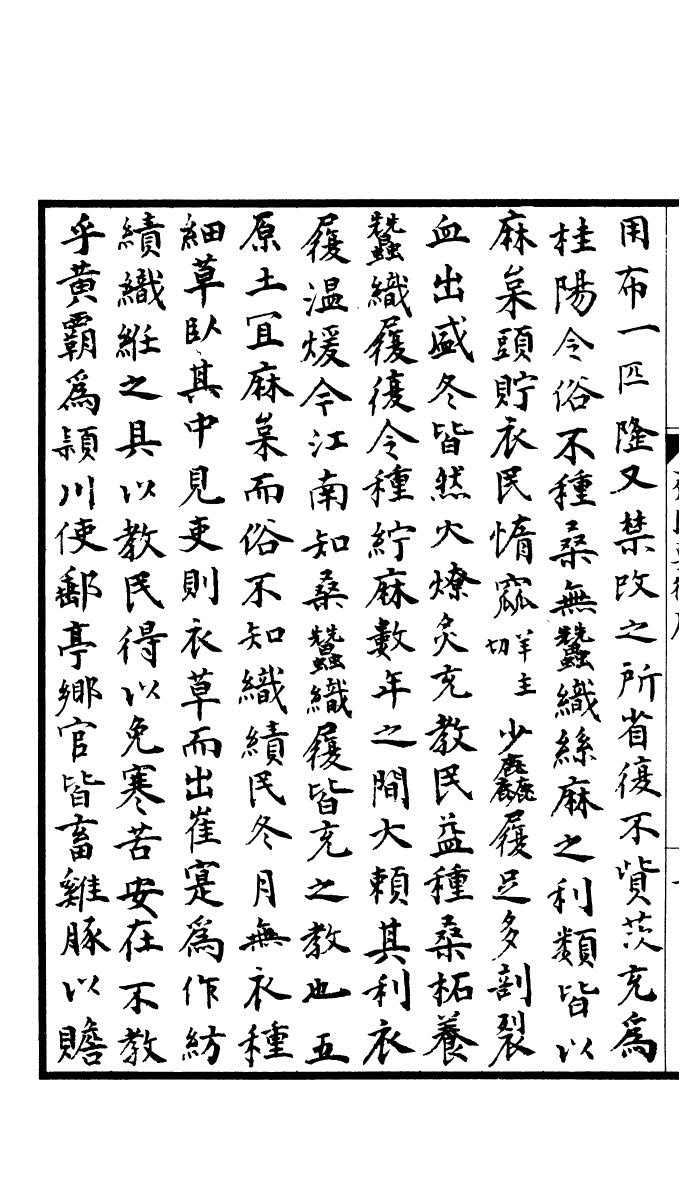 用布一匹隆又禁改之所省復不貲茨充爲
桂陽令俗不種桑無蠶織絲麻之利類皆以
麻枲頭貯衣民惰窳羊主切少麤履足多剖裂
血出盛冬皆然火燎炙充教民益種桑柘養
蠶織履復令種紵麻數年之間大頼其利衣
履溫煖今江南知桑蠶織履皆充之教也五
原土冝麻枲而俗不知織績民冬月無衣種
細草臥其中見吏則衣草而出崔寔爲作紡
績織絍之具以教民得以免寒苦安在不教
乎黃霸爲頴川使郵亭鄉官皆畜雞豚以贍